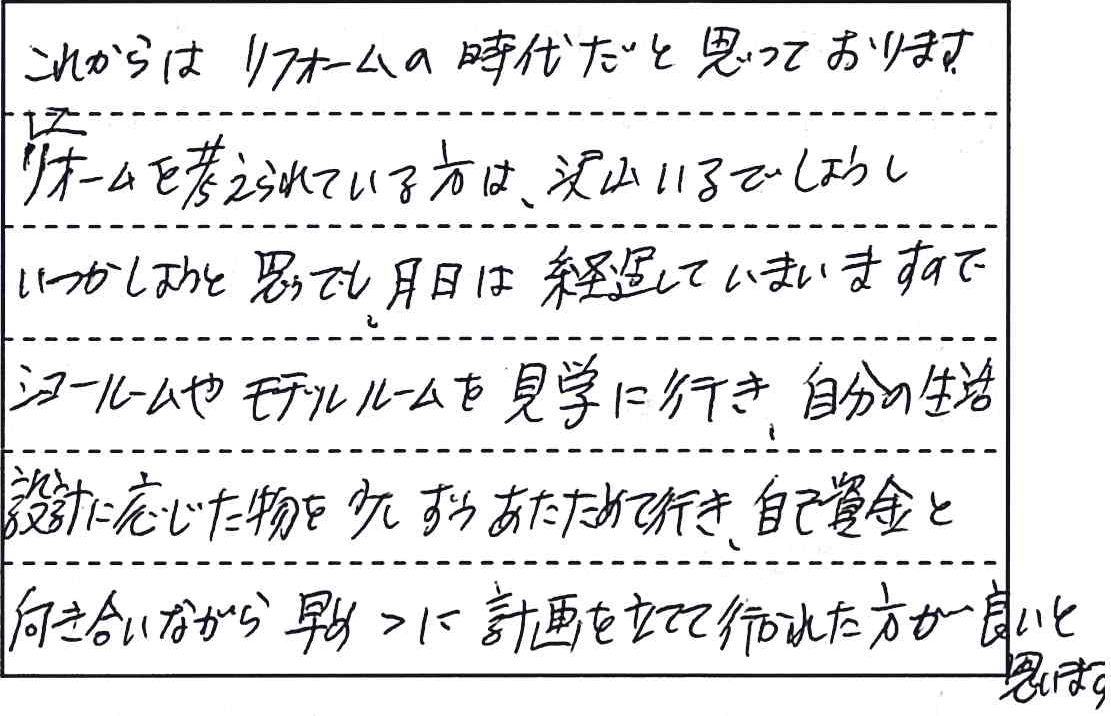 これからは リフォームの 時代だと 思っております。
リフォームを考えられている方は、沢山いるでしょうし
いつかしようと 思うでも、月日は 経過していまいますので
ショールームや モデルルームを 見学に行き、自分の生活
設計に応じた物を 少しずつ あたためて行き、自己資金と
向き合いながら 早めつに 計画を立てて行かれた方が良いと
思います。